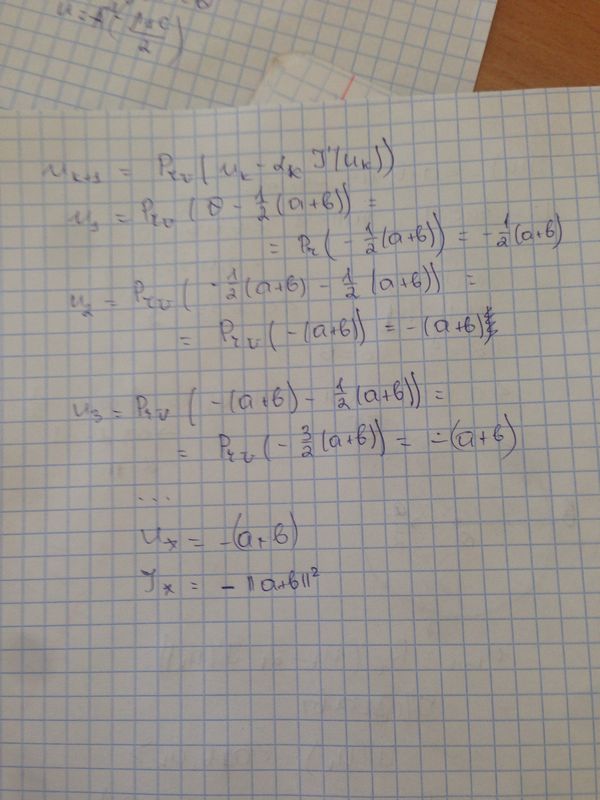 u_{k+1} = Pr_U (u_k - α_k J'(u_k))
u_1 = Pr_U (θ - 1/2 (a+b)) =
= Pr (-1/2 (a+b)) = -1/2 (a+b)
u_2 = Pr_U (-1/2 (a+b) - 1/2 (a+b)) =
= Pr_U (-(a+b)) = -(a+b)
u_3 = Pr_U (-(a+b) - 1/2 (a+b)) =
= Pr_U (-3/2 (a+b)) = -(a+b)
...
u_* = -(a+b)
J_* = -||a+b||²